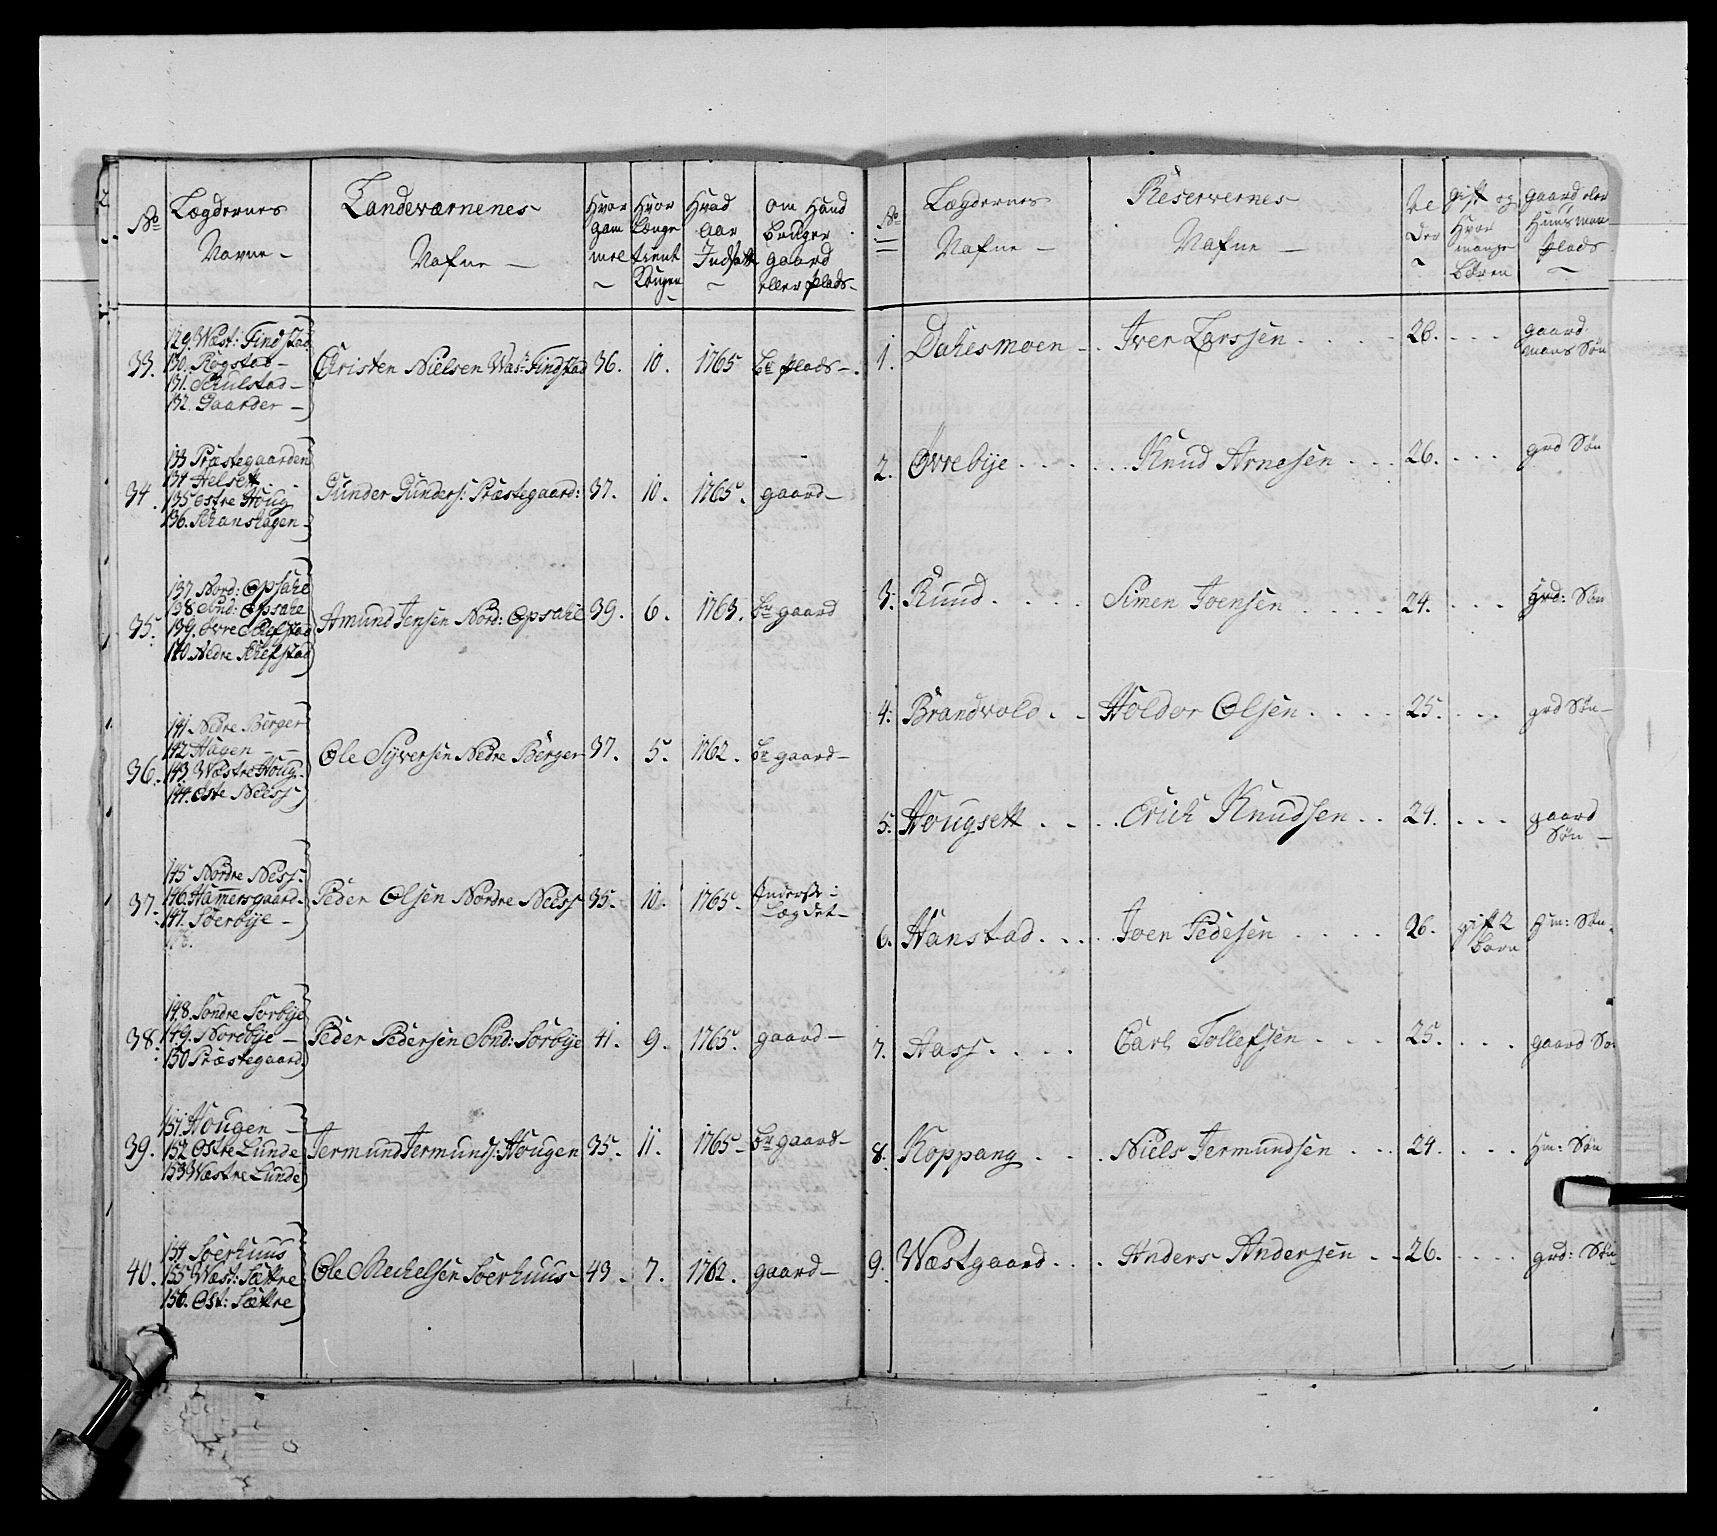 No
Lægdernes
Navne -
Landeværnenes
Nafne -
Hvor
gam
mel
~
Hvor
længe
tient
Kongen
~
Hvad
aar
Indsatt
~
om Hand
bruger
gaard
eller plads -
33.
129. Wæst: Findstad
130. Rogstad -
131. Skulstad -
132. Gaarder -
Christen Nielsen Wæs: Findstad 36. 10. 1765 br plads -.
34.
133 Præstegaarden
134 Helsett . .
135 Østre Houg
136. Skanshagen -
Gunder Gunders: Præstegaard: 37. 10. 1765. gaard -
35.
137 Nord: Opsahl
138 Sud: Opsahl
139. Øvre Skefstad
140. Nedre Skefstad
Amund Jensen Nord: Opsahl 39. 6. 1763. br gaard
36.
141. Nedre Berger
142 Hagen - -
143. Wæstre Houg.
144. Øste Ness
Ole Syversen Nedre Berger 37. 5. 1762. br gaard -
37.
145 Nordre Ness.
146. Hamersgaard.
147. Soerbye -
Peder Olsen Nordre Ness 35. 10. 1765. Inderste i
Lægdet -
38.
148. Sondre Sorbye
149. Nordbye -
150 Præstegaard
Peder Pedersen Sønd: Sorbye 41. 9. 1765. gaard -
39.
151 Hougen -
152 Østre Lunde
153 Wæstre Lunde
Jermund Jermunds: Hougen 35. 11. 1765 - br gaard -
40.
154. Soerhuus
155 Wæst: Sættre
156. Øst: Sættre
Ole Mechelsen Soerhuus 43. 7. 1762. gaard -
No
Lægdernes
Nafne -
Reservernes
Nafne -
Al
der
~
gift og
Hvor
mange
børen
gaard eler
Huusman
plads
~
1. Dahlsmoen - . Iver Larssen . . . . 26. . . . gaard
mans Søn
2. Øvrebye . . . . . . Knud Arnesen . . . 26. . . . grd Søn
3. Ruud. . . . Simen Joensen . . . . 24. . . . grd: Søn
4. Brandvold . - Holdor Olsen . . . . 25. . . . grd Søn -
5. Hougsett . - . . Erich Knudsen . . 24. . . . gaard
Søn -
6. Hanstad . . . . Joen Pedesen . . . . 26. gift 2
børn Hm: Søn.
7. Aass. . . . Carl Tollefsen . . . 25. . . . gaard Søn
8. Koppang . . . . Niels Jermundsen . . . 24. . . . Hm: Søn
9. Wæstgaard . . . Anders Andersen . . 26. . . . . grd: Søn